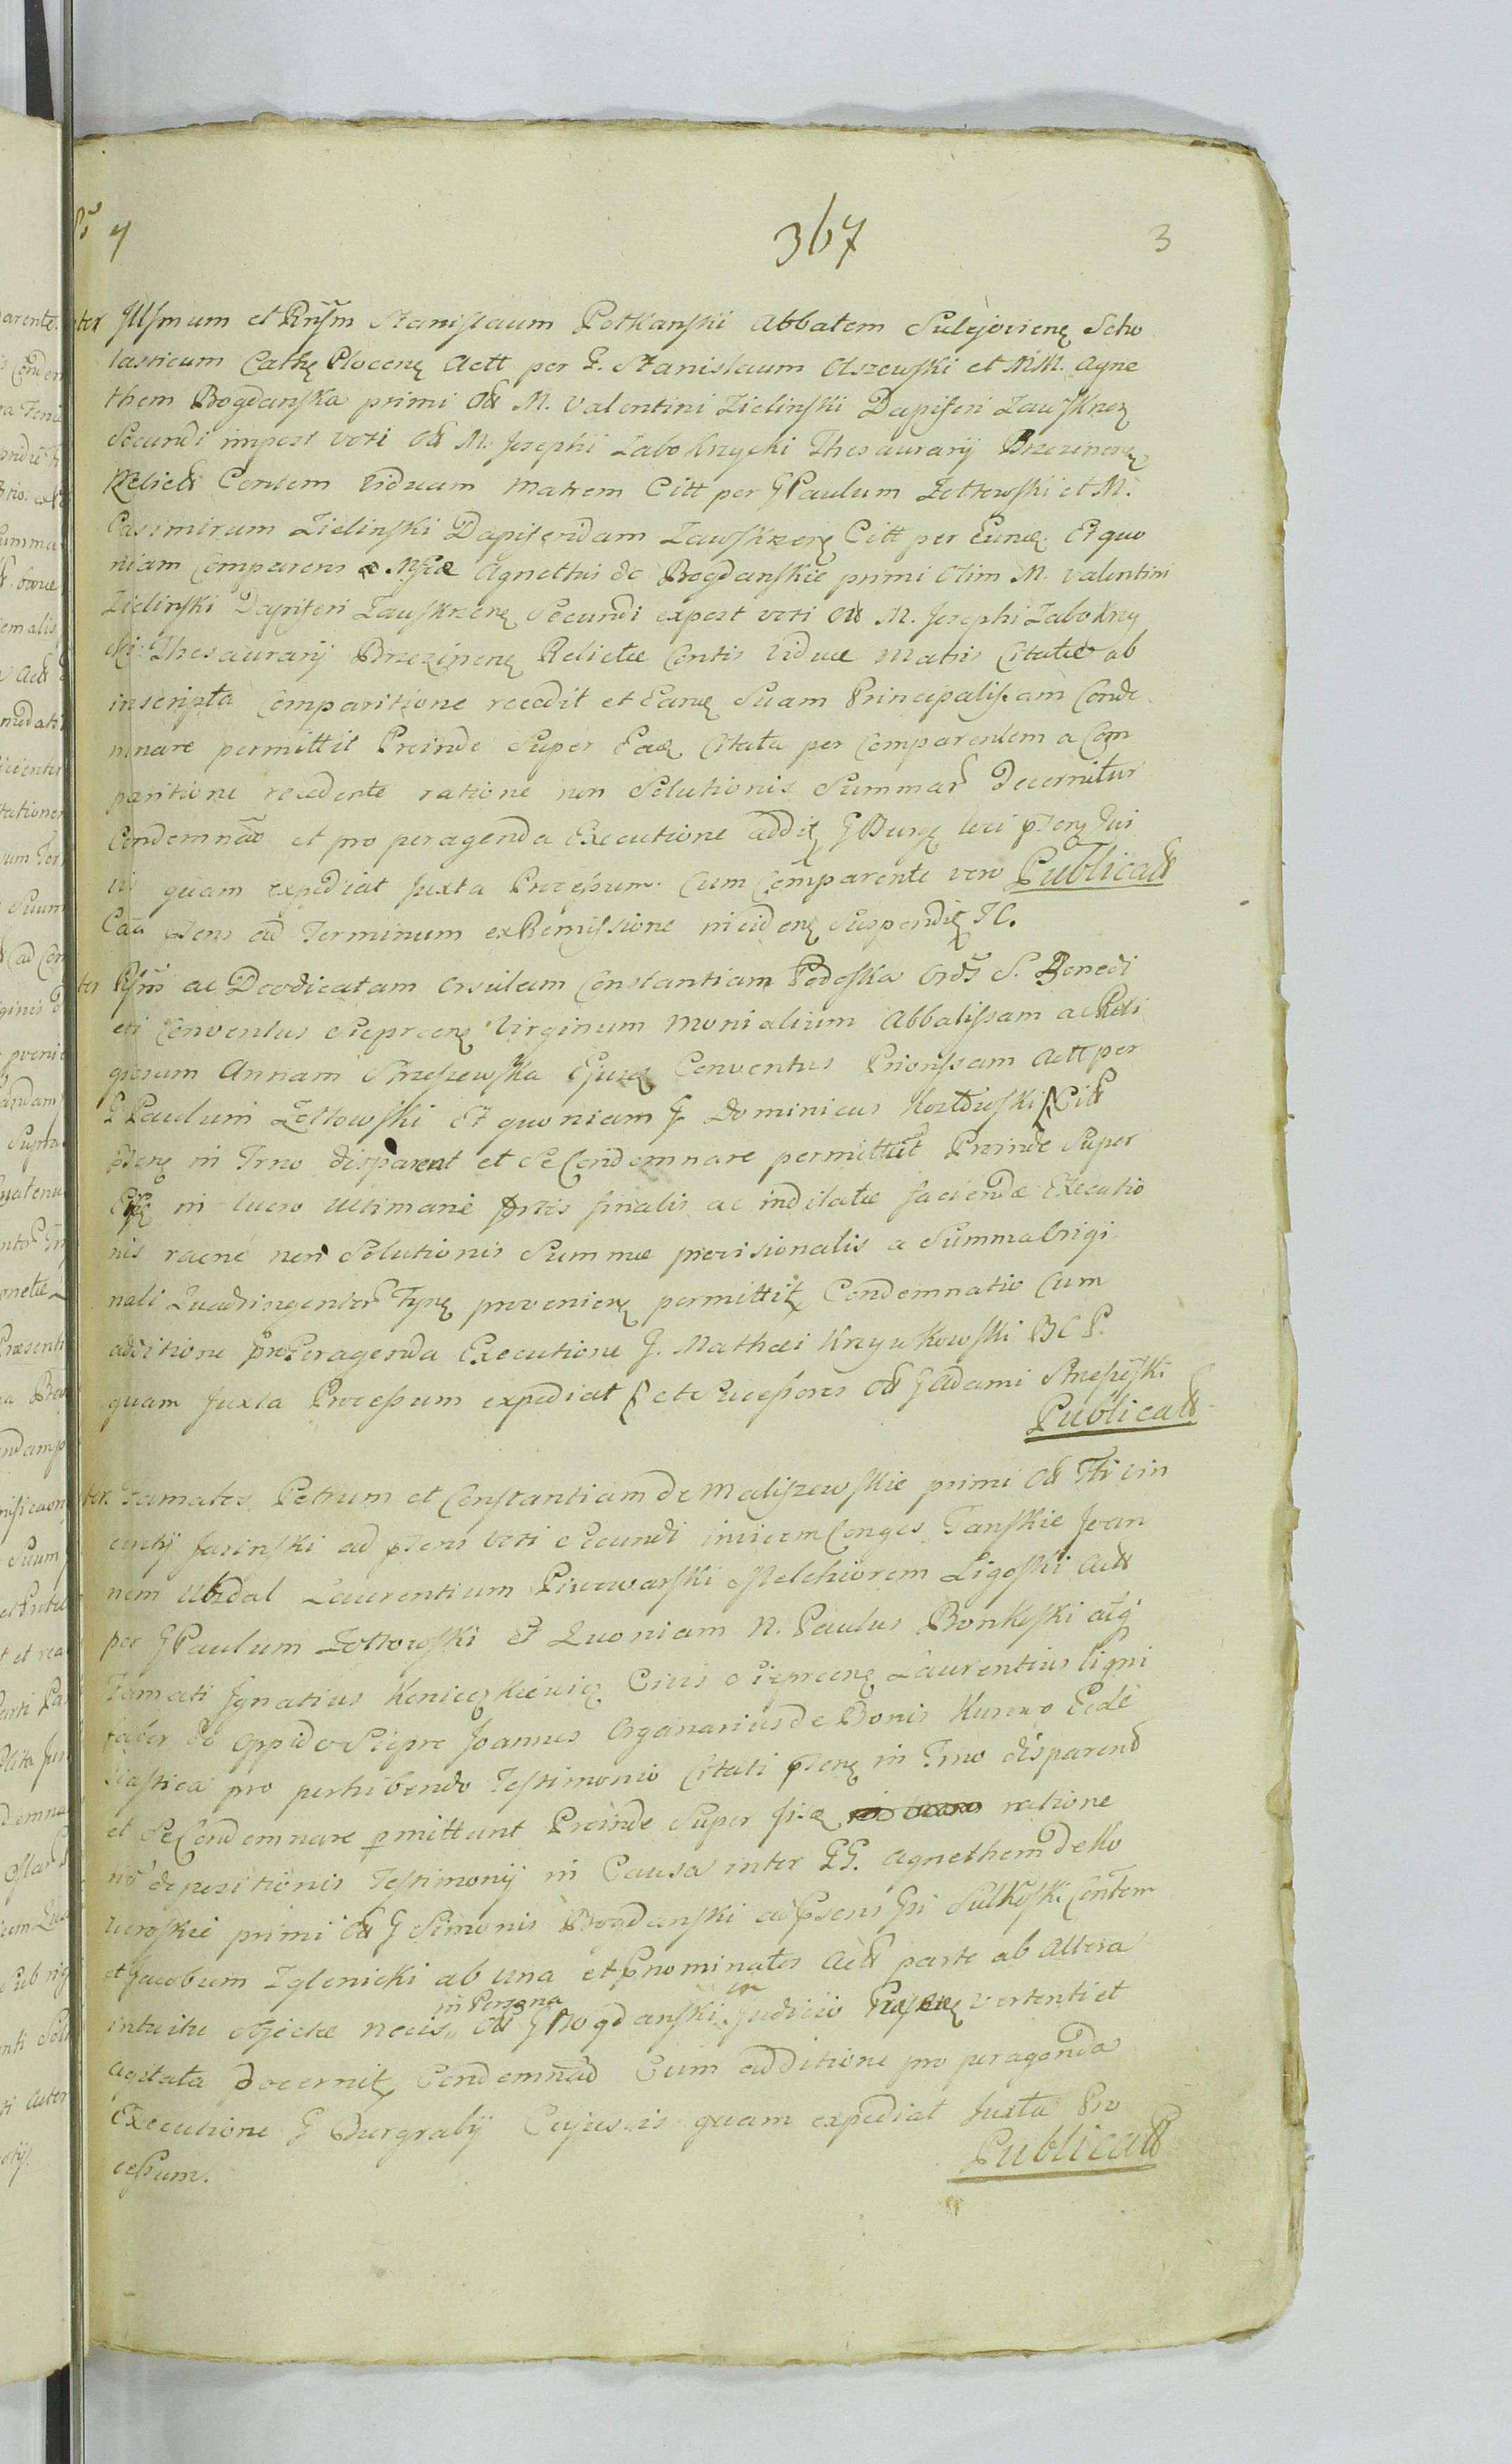 4 367 3
Inter Jllsmum et Rnsm̃ Stanislaum Potkanski Abbatem Sulejoviens Scho
lasticum Cathe Plocens Actt per G. Stanislaum Olszewski et MM. Agne
them Bogdanska primi Olt M. Valentini Zielinskii Dapiferi Zawskrzen
Secundi impost voti Olt M. Josephi Zabokrzycki Thesaurarij Brzezinens
Relictt Contem Viduam Matrem Citt per G Paulum Zottowski et M.
Casimirum Zielinski Dapiferidam Zawskrzen Citt per Eund. Et quo
niam Comparens e Mfcæ Agnethis de Bogdanskie primi Olim M. Valentini
Zielinski Dapiferi Zauskrzens Secundi expost voti Olt M. Josephi Zabokrzy
cki Thesaurarij Brzezinens Relictæ Contis Viduæ Matris Citatæ ab
inscripta Comparitione recedit et Eand Suam Principalissam Conde
mnare permittit Proinde Super Ead Citata per Comparentem a Com
paritione recedente ratione non Solutionis Summar̃ Decernitur
Condemnão et pro peragenda Executione addit G Burg loci psens Jui
us quam expediat Juxta Processum. Cum Comparente vero Publicatt
Caã psens ad Terminum ex Remissione inciden Suspendit JC.
Inter Rsm̃ ac Deodicatam Orsulam Constantiam Podoska Ords S. Benedi
cti Conventus Sieprcens Virginum Monialium Abbatissam ac Reli
giosam Annam Strzeszewska Ejusd Conventus Priorissam Actt per
G Paulum Zottowski Et quoniam G Dominicus Kozłowski Citt
psens in Trno disparent et Se Condemnare permittut Proinde Super
in lucro Ultimanè ftis finalis ac indilatæ faciendæ Executio
nis raene non Solutionis Summæ provisionalis a Summa Origi
nali Quadringentor Tynf provenien permittit Condemnatio Cum
additione pro Peragenda Executione G. Mathæi Krzyukowski BCP.
quam Juxta Processum expediat et Sucessores Olt G Adami Strzeszeski
Publicatt
Inter Famatos Petrum et Constantiam de Maliszewskie primi Olt Ftti Vin
centij Jasinski ad psens voti Secundi invicem Conges Tanskie Joan
nem Uzdal Laurentium Piwowarski Melchiorem Ligoski Actt
per G Paulum Zottowski Et Quoniam N. Paulus Bonkoski atq
Famati Ignatius Konieczkiewicz Civis Sieprcens Laurentius ligni
faber de Oppido Siepre Joannes Organarius de Bonis Kurowo Eccle
siastica pro perhibendo Testimonio Citati psens in Trno disparend
et Se Condemnare pmittunt Proinde Super ratione
nõ depositionis Testimonij in Causa inter GG. Agnethem de Ko
zuroskie primi Olt G Simonis Bogdanski ad psens Gsi Sulkoski Contem
et Jacobum Zglenicki ab una et Pnominatos Actt parte ab Altera
intuitu objectæ necis in Persona Olt G Bogdanski in Judicio vertenti et
Agitata decernit Condemnão Cum additione pro peragenda
Executione G Burgrabij Cujusvis quam expediat Juxta Pro
cessum. Publicatt